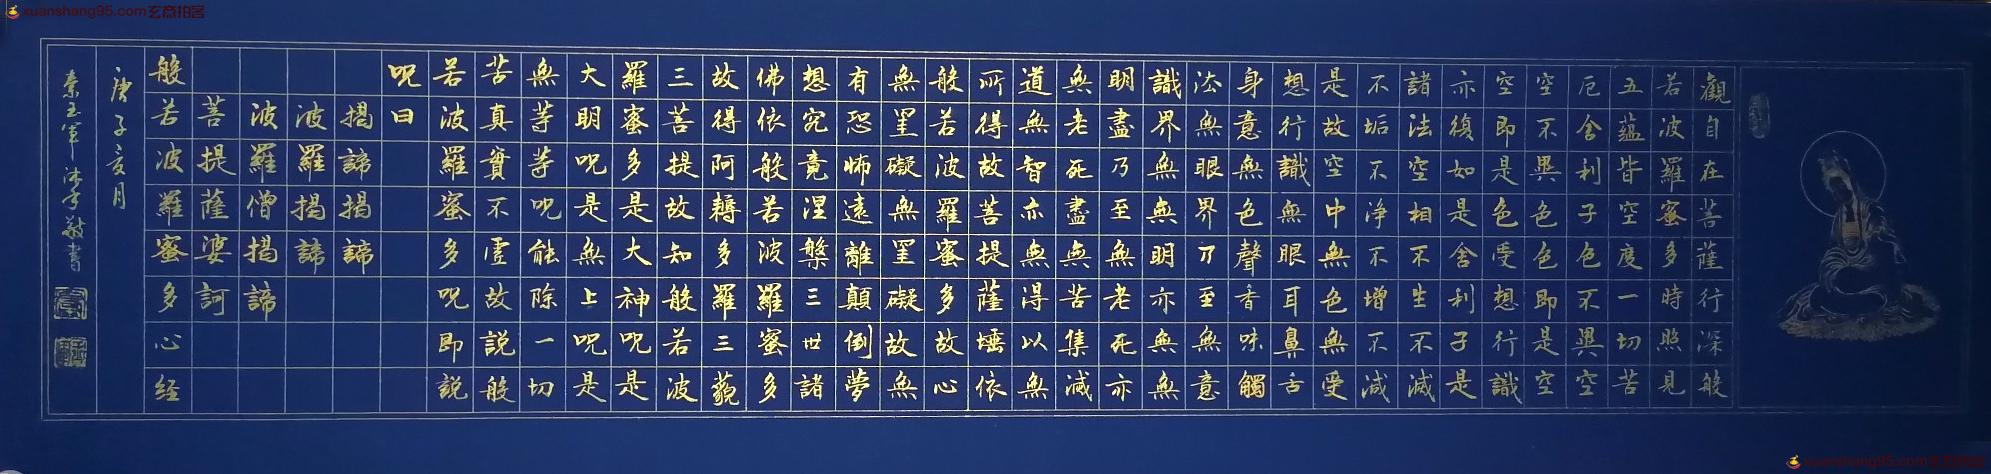 xuanshang95.com玄商拍客
觀自在菩薩行深般
若波羅蜜多時照見
五蘊皆空度一切苦
厄舍利子色不異空
空不異色色即是空
空即是色受想行識
亦復如是舍利子是
諸法空相不生不滅
不垢不淨不增不減
是故空中無色無受
想行識無眼耳鼻舌
身意無色聲香味觸
法無眼界乃至無意
識界無無明亦無無
明盡乃至無老死亦
無老死盡無苦集滅
道無智亦無得以無
所得故菩提薩埵依
般若波羅蜜多故心
無罣礙無罣礙故無
有恐怖遠離顛倒夢
想究竟涅槃三世諸
佛依般若波羅蜜多
故得阿耨多羅三藐
三菩提故知般若波
羅蜜多是大神呪是
大明呪是無上呪是
無等等呪能除一切
苦真實不虛故說般
若波羅蜜多呪即說
呪曰
揭諦揭諦
波羅揭諦
波羅僧揭諦
菩提薩婆訶
般若波羅蜜多心经
庚子夏月
秦玉軍沐手敬書
xuanshang95.com玄商拍客